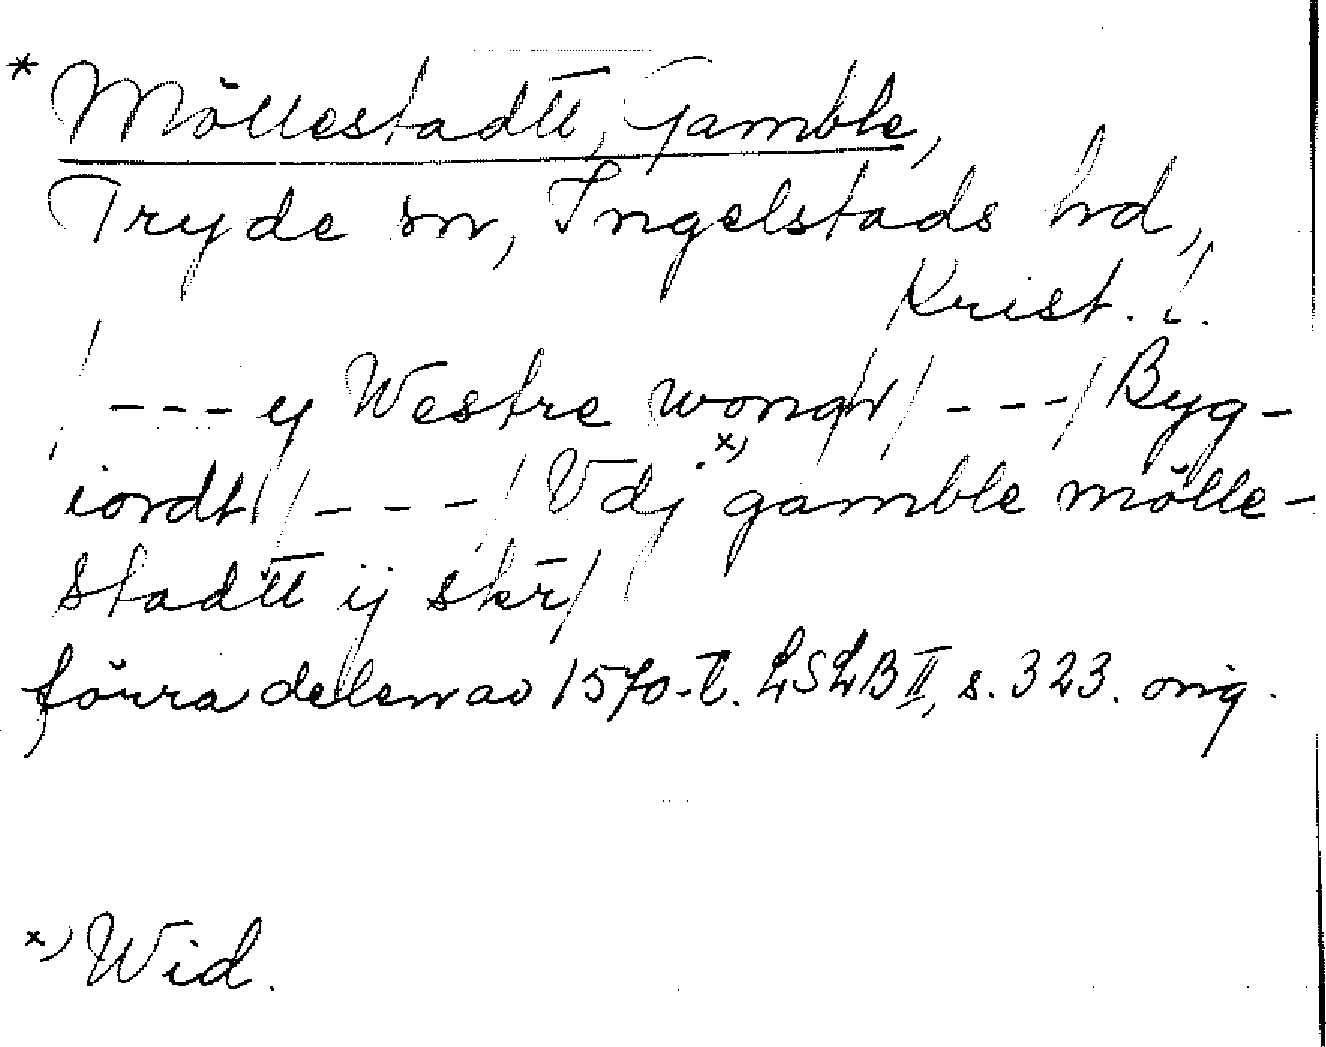 * Möllestadtt, Gamble,
Tryde sn, Ingelstads hd,
Krist. l.
/---y Westre wongh/---/Byg-
iordt/---/Vdj x) gamble mölle-
stadtt ij skr/
förra delen av 1570-t. LSLB II, s. 323. orig.
x) Wid.